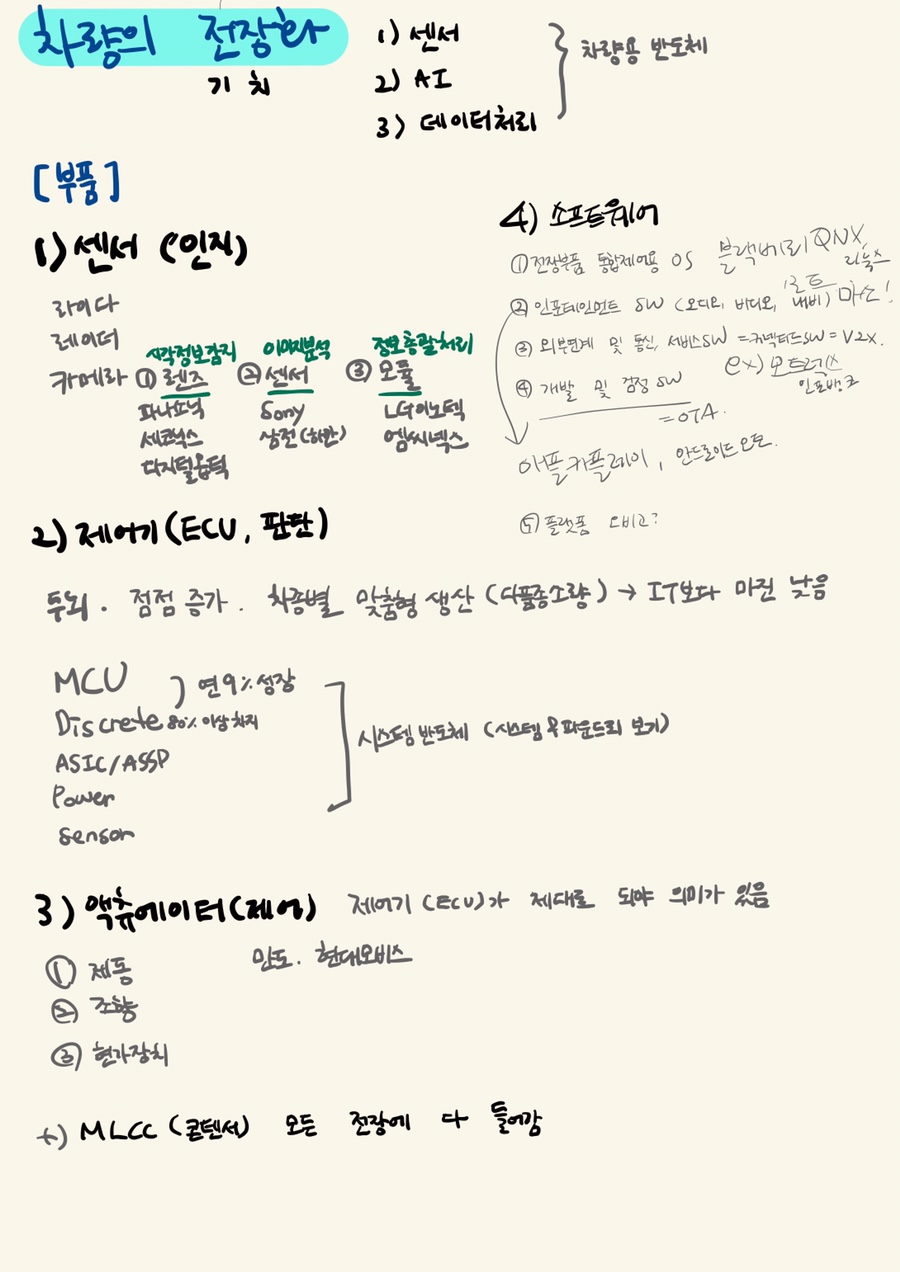 차량의 전장화
기 치
1) 센서
2) AI
3) 데이터처리
차량용 반도체
[부품]
1) 센서 (인지)
라이다
레이더
카메라
시각정보감지
① 렌즈
파나소닉
세코닉스
디지털옵틱
이미지분석
② 센서
Sony
삼전(하만)
정보총괄처리
③ 모듈
LG이노텍
엠씨넥스
4) 소프트웨어
① 전장부품 통합제어용 OS 블랙베리 QNX,
리눅스
② 인포테인먼트 SW (오디오, 비디오, 내비)
③ 외부연계 및 통신, 서비스SW = 커넥티드SW = V2X.
ex) 모트렉스
인포뱅크
④ 개발 및 검정 SW
= OTA.
애플카플레이, 안드로이드오토.
⑤ 플랫폼
2) 제어기(ECU, 판단)
두뇌. 점점 증가. 차종별 맞춤형 생산 (다품종소량) → IT보다 마진 낮음
MCU
Discrete 80% 이상 차지
ASIC/ASSP
Power
Sensor
) 연9% 성장
시스템 반도체 (시스템 & 파운드리 보기)
3) 액츄에이터(제어) 제어기 (ECU)가 제대로 되야 의미가 있음
① 제동
② 조향
③ 현가장치
만도. 현대모비스
+) MLCC (콘텐서) 모든 전장에 다 들어감